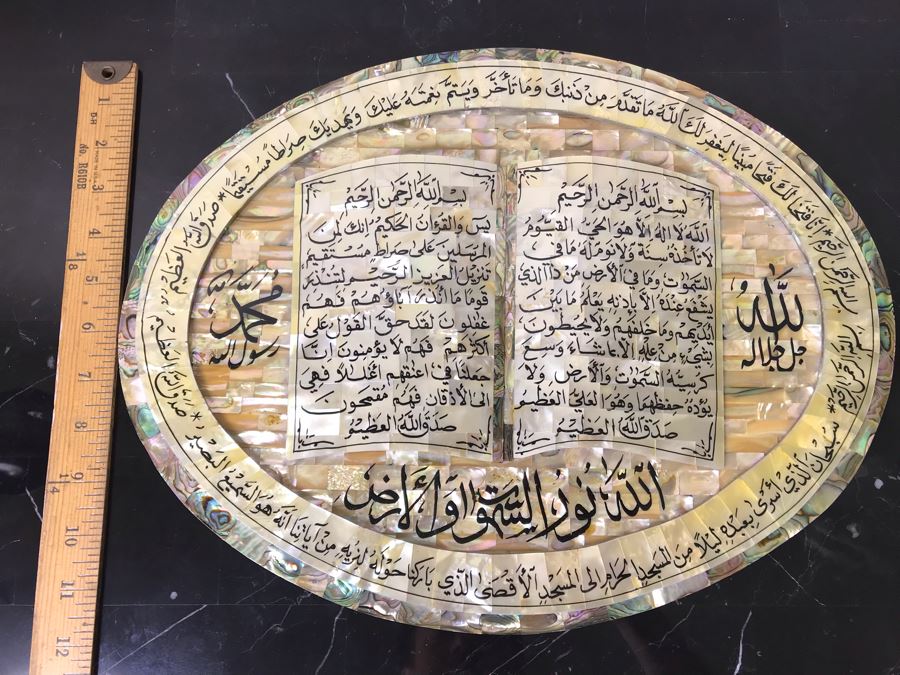 بسم الله الرحمن الرحيم * انا فتحنا لك فتحا مبينا ليغفر لك الله ما تقدم من ذنبك وما تأخر ويتم نعمته عليك ويهديك صراطا مستقيما * صدق الله العظيم
بسم الله الرحمن الرحيم
الله لا اله الا هو الحي القيوم
لا تأخذه سنة ولا نوم له ما في
السموت وما في الأرض من ذا الذي
يشفع عنده الا باذنه يعلم ما بين
ايديهم وما خلفهم ولا يحيطون
بشيء من علمه الا بما شاء وسع
كرسيه السموت والأرض ولا
يؤده حفظهما وهو العلي العظيم
صدق الله العظيم
بسم الله الرحمن الرحيم
يس والقرءان الحكيم انك لمن
المرسلين على صراط مستقيم
تنزيل العزيز الرحيم لتنذر
قوما ما انذر اباؤهم فهم
غفلون لقد حق القول على
اكثرهم فهم لا يؤمنون إنا
جعلنا في اعنقهم اغللا فهي
الى الأذقان فهم مقمحون
صدق الله العظيم
الله
جل جلاله
محمد
رسول الله
الله نور السموت والأرض
بسم الله الرحمن الرحيم * سبحان الذي أسرى بعبده ليلا من المسجد الحرام إلى المسجد الأقصى الذي باركنا حوله لنريه من آياتنا انه هو السميع البصير * صدق الله العظيم
No. R610B
1
2
3
4
5
6
7
8
9
10
11
12